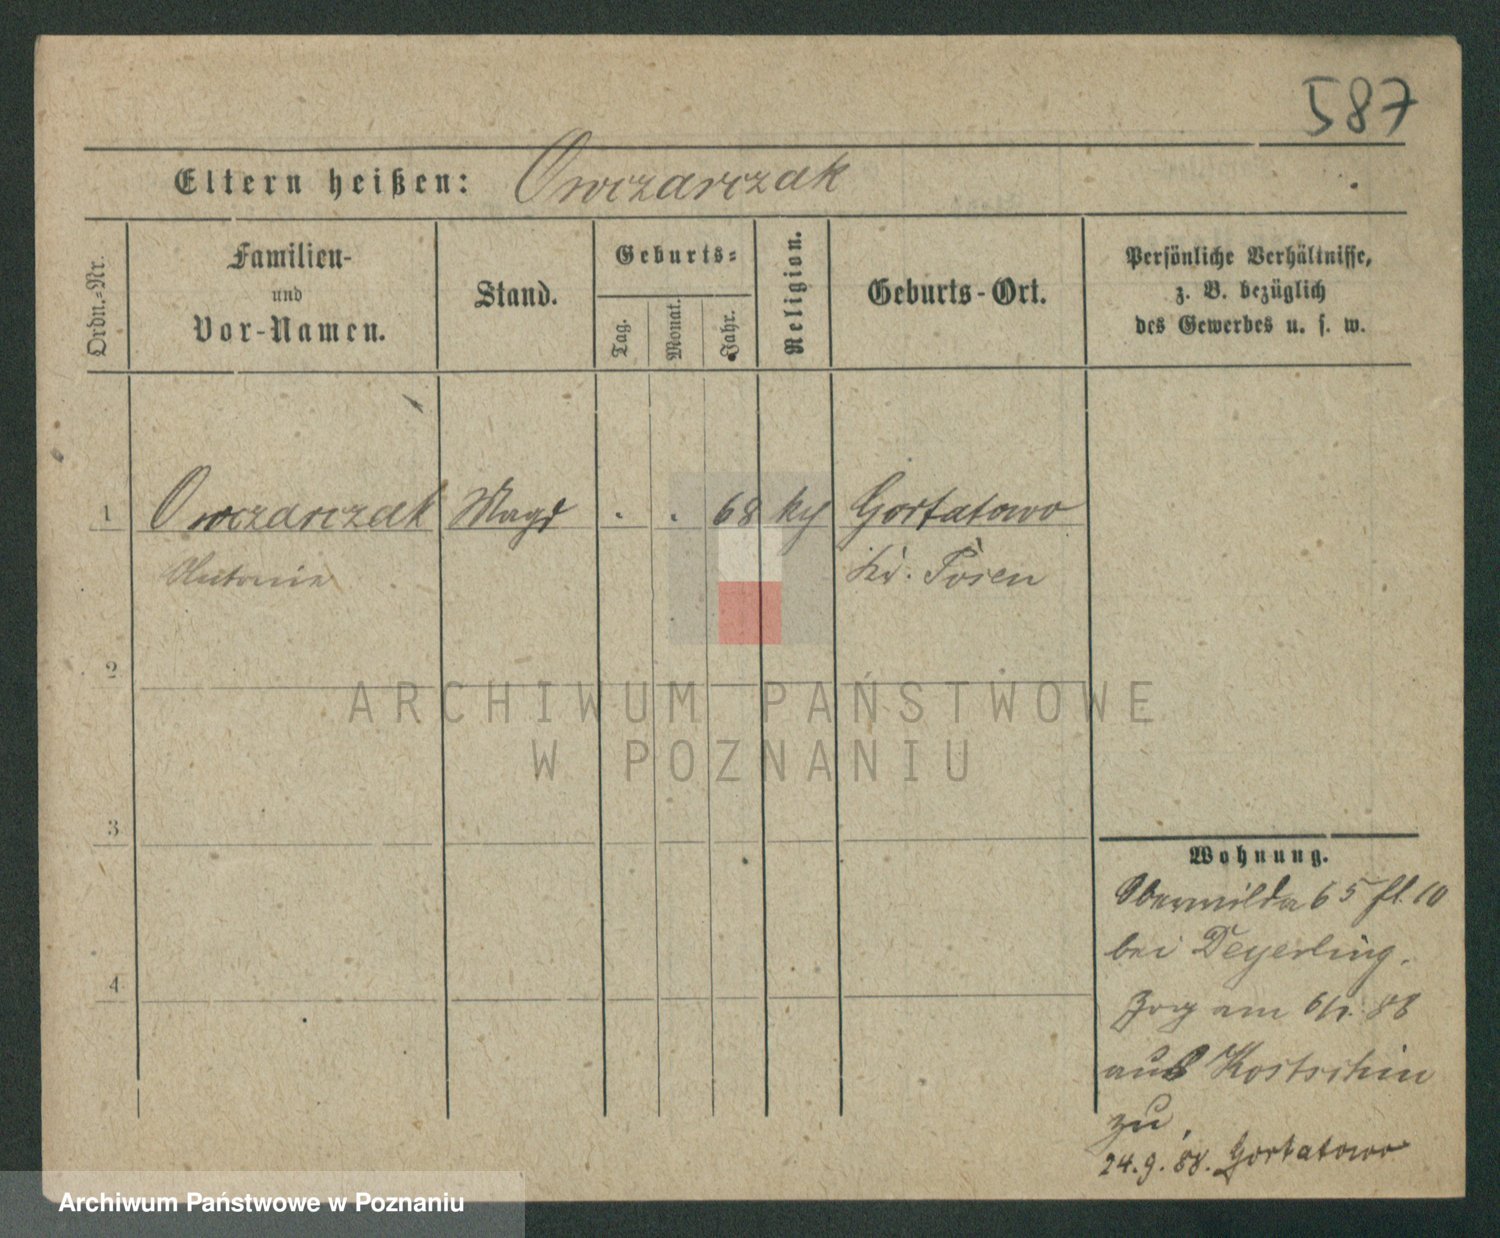 587
Eltern heißen: Owczarczak
Ordn.-Nr.
Familien-
und
Vor-Namen.
Stand.
Geburts-
Tag.
Monat.
Jahr.
Religion.
Geburts-Ort.
Persönliche Verhältnisse,
z. B. bezüglich
des Gewerbes u. s. w.
1 Owczarczak Magd . . 68 Gortatowo
Antonie Kr. Posen
2
ARCHIWUM PAŃSTWOWE
W POZNANIU
3
Wohnung.
Oberwilda 65 fl. 10
bei Deyerling.
4
Zog am 88
aus Kostschin
zu,
24.9.88. Gortatowo
Archiwum Państwowe w Poznaniu